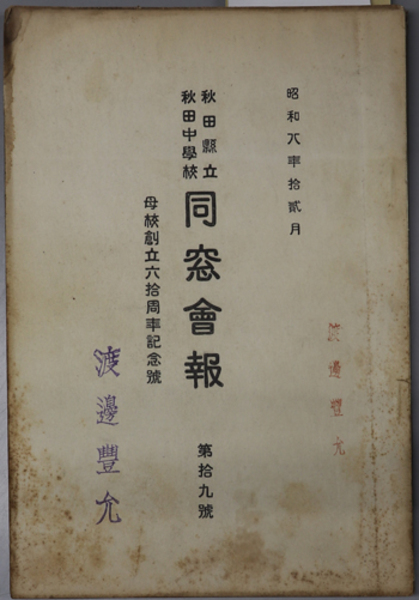 昭和八年拾貳月
秋田縣立
秋田中學校
同窓會報
第拾九號
母校創立六拾周年記念號
渡邊豐允
渡邊豐允